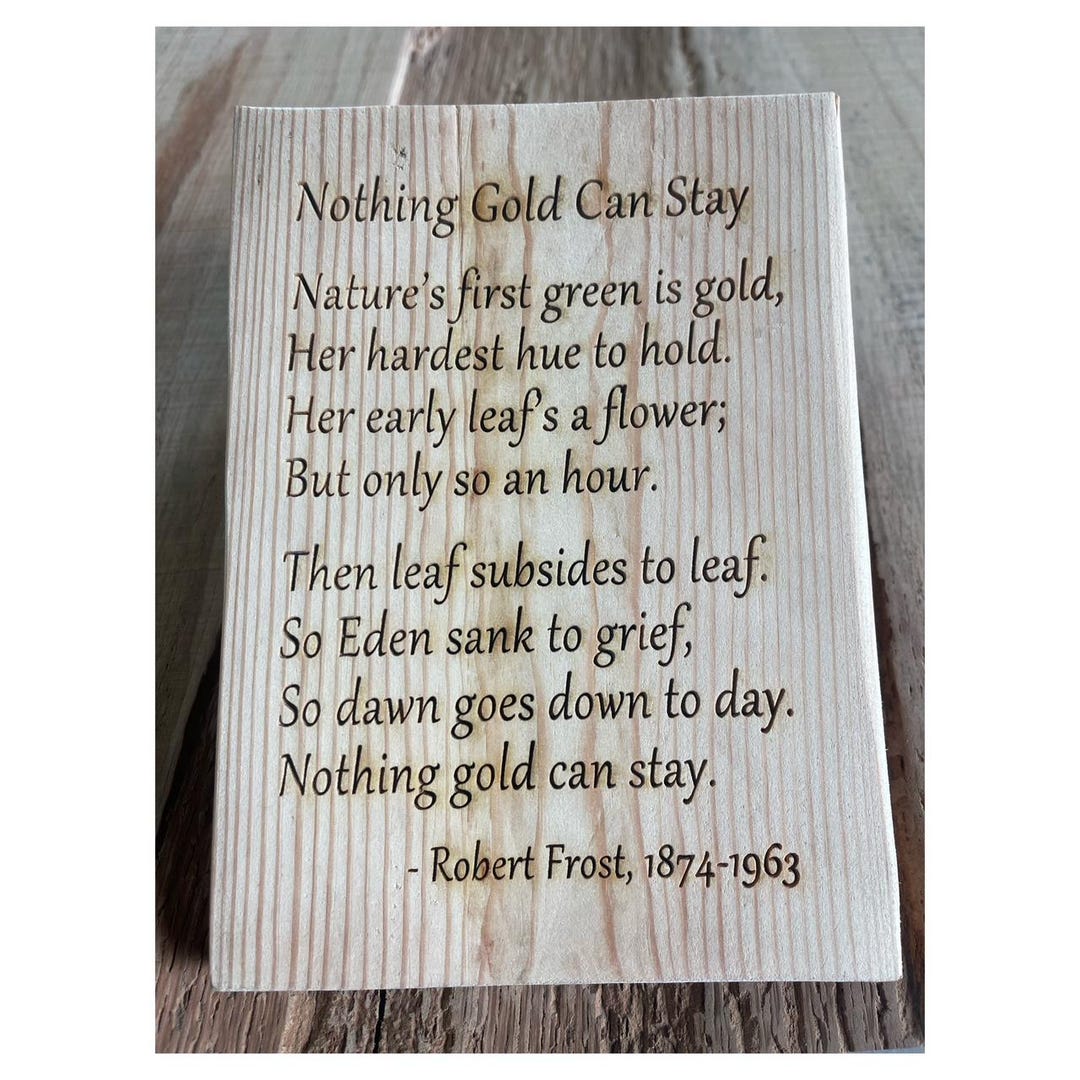 Nothing Gold Can Stay
Nature's first green is gold,
Her hardest hue to hold.
Her early leaf's a flower;
But only so an hour.
Then leaf subsides to leaf.
So Eden sank to grief,
So dawn goes down to day.
Nothing gold can stay.
- Robert Frost, 1874-1963